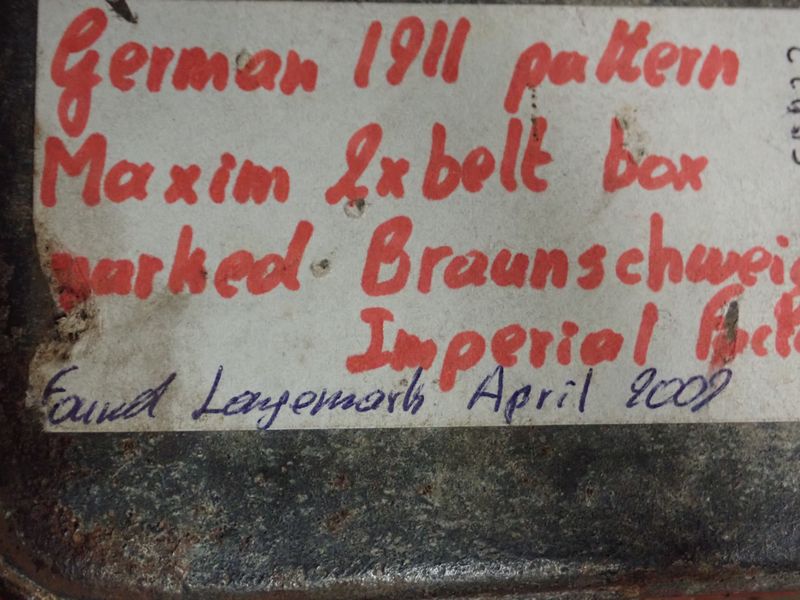 German 1911 pattern
Maxim 2x belt box
marked Braunschweig
Imperial
Found Langemark April 2002